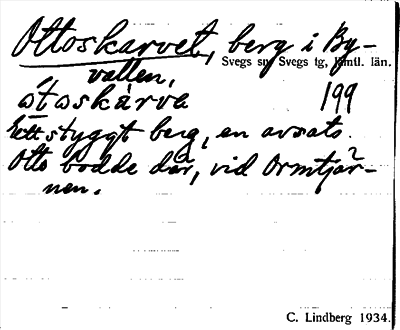 Ottoskarvet, berg i By-
Svegs sn, Svegs tg, Jämtl. län.
vallen,
åtoskárva 199
Ett styggt berg, en avsats.
Otto bodde där, vid Ormtjär-
nen.
C. Lindberg 1934.